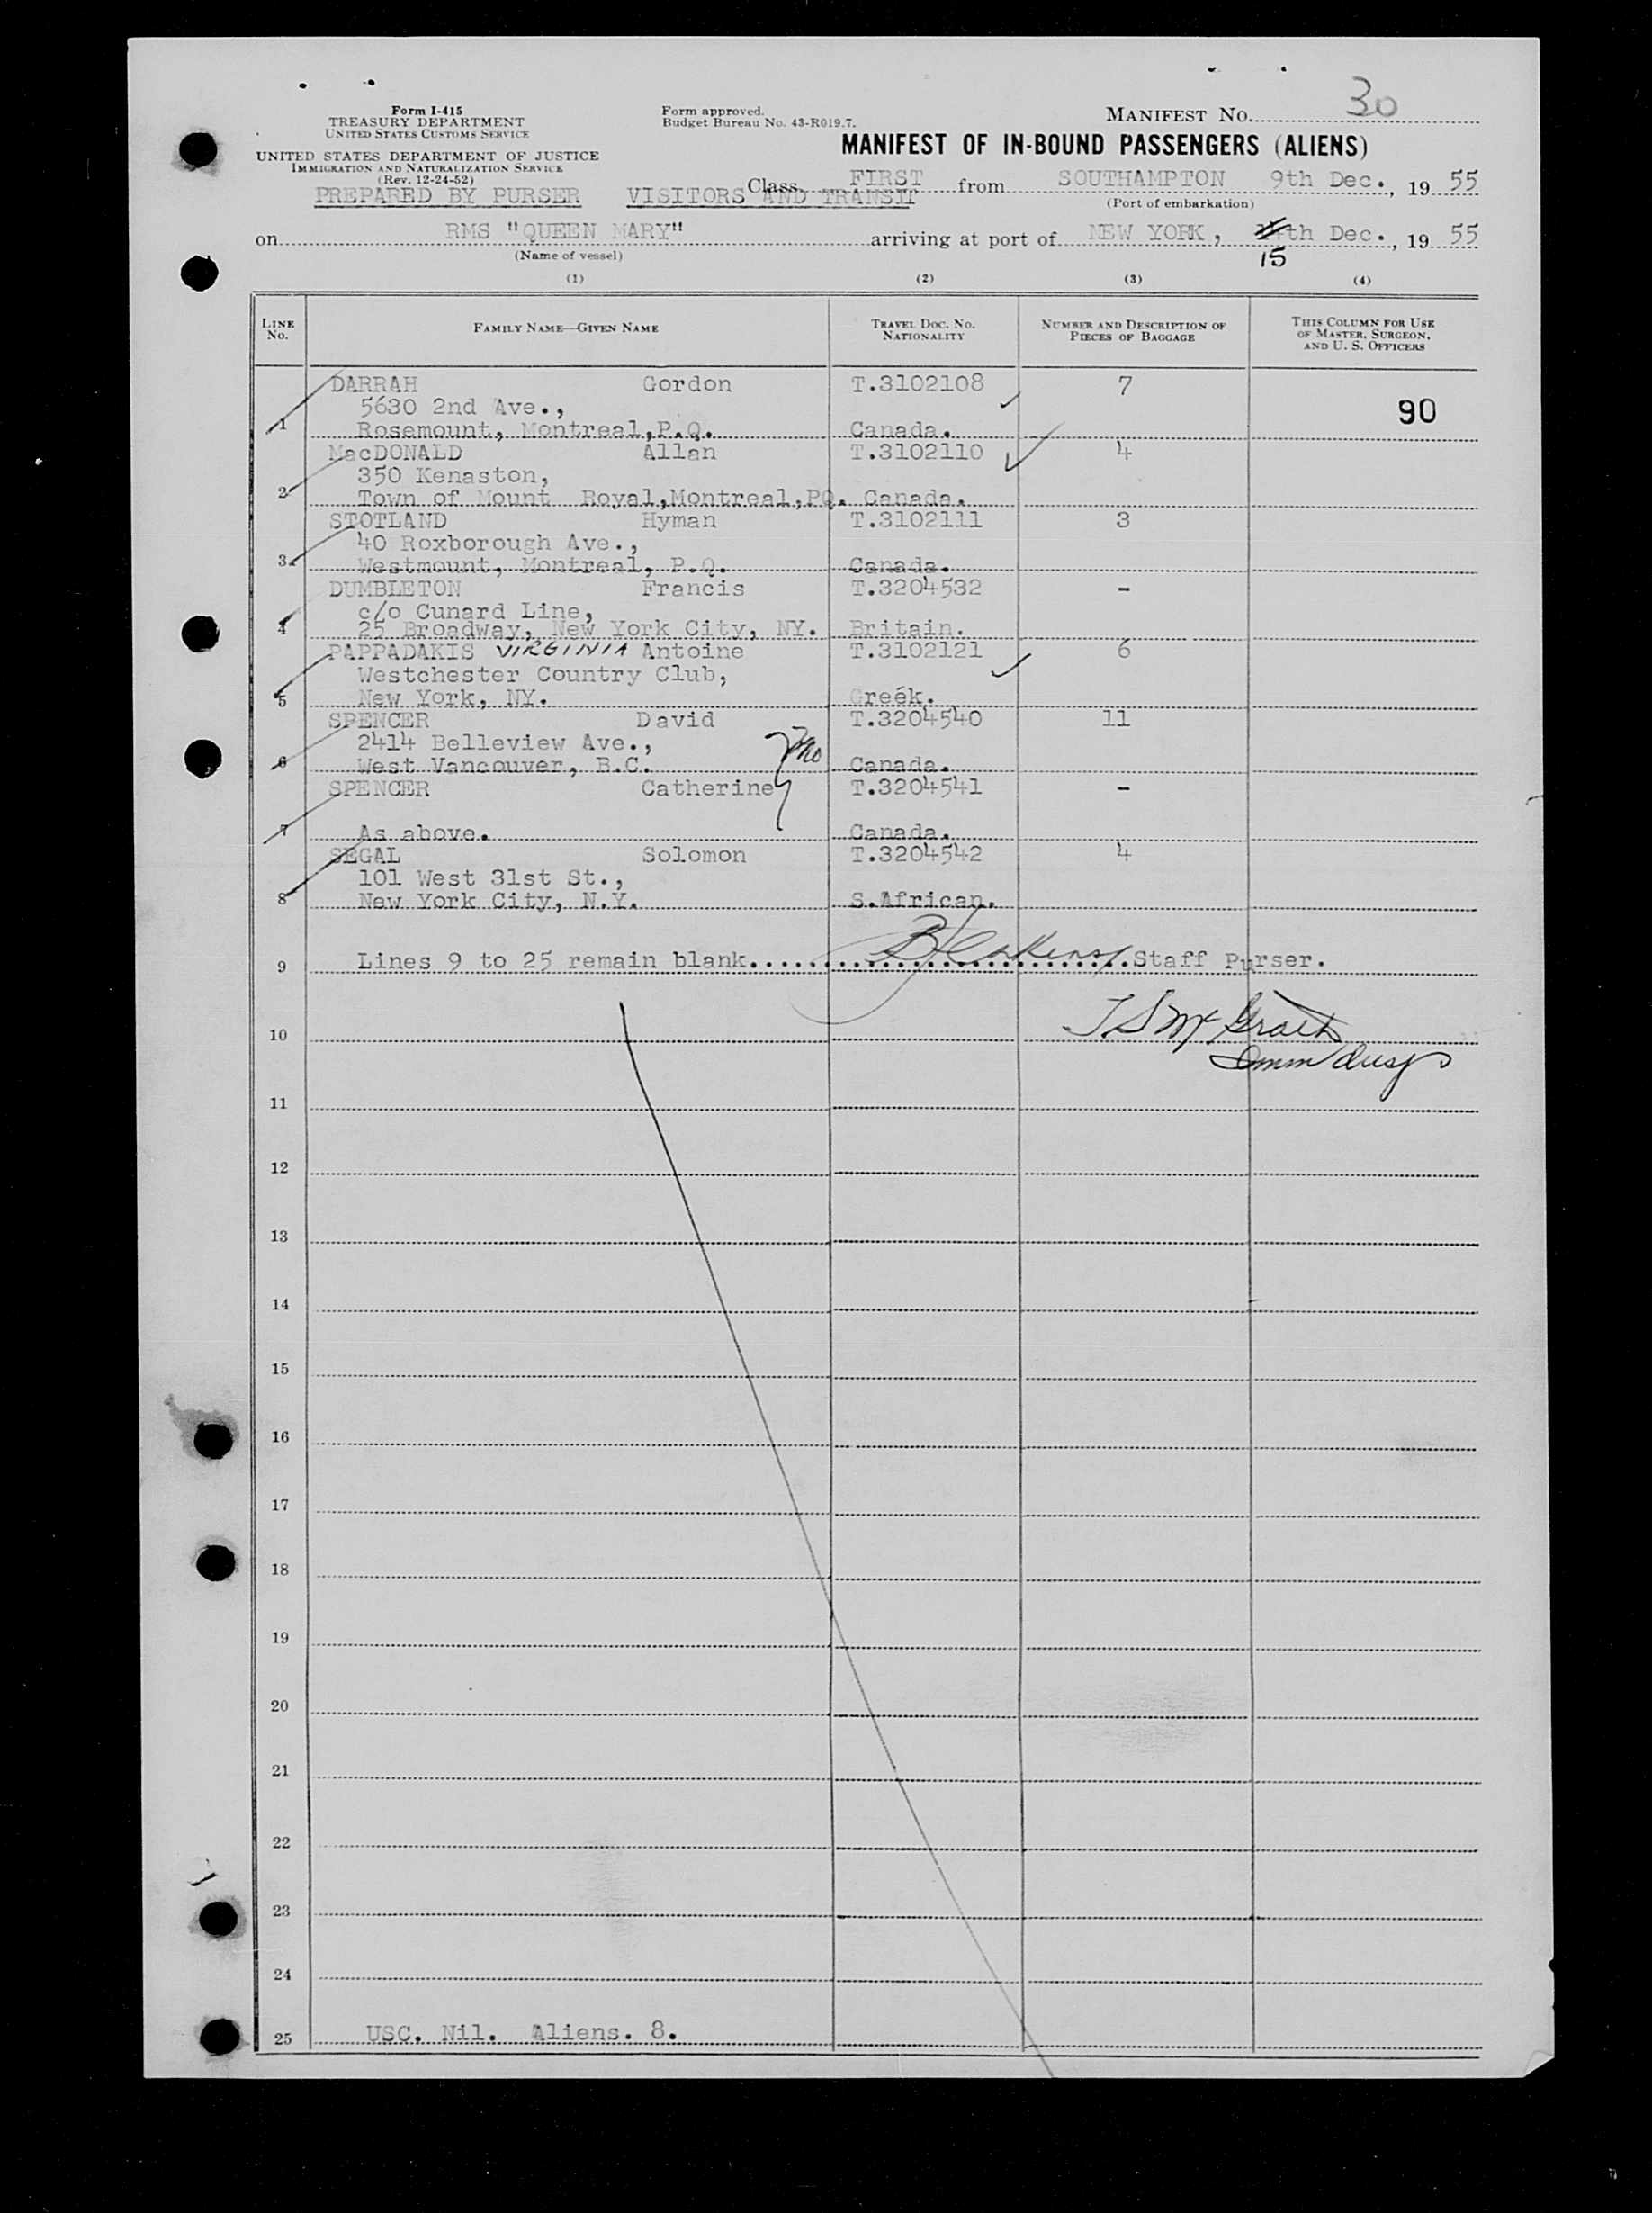 Form I-415
TREASURY DEPARTMENT
UNITED STATES CUSTOMS SERVICE
UNITED STATES DEPARTMENT OF JUSTICE
IMMIGRATION AND NATURALIZATION SERVICE
(Rev. 12-24-52)
PREPARED BY PURSER
Form approved.
Budget Bureau No. 43-R019.7.
MANIFEST NO. 30
MANIFEST OF IN-BOUND PASSENGERS (ALIENS)
VISITORS AND TRANSIT
Class FIRST from SOUTHAMPTON 9th Dec., 19 55
(Port of embarkation)
on RMS "QUEEN MARY" arriving at port of NEW YORK, th Dec., 19 55
15
(Name of vessel)
(1) (2) (3) (4)
LINE NO. FAMILY NAME—GIVEN NAME TRAVEL DOC. NO. NATIONALITY NUMBER AND DESCRIPTION OF PIECES OF BAGGAGE THIS COLUMN FOR USE OF MASTER, SURGEON, AND U. S. OFFICERS
DARRAH Gordon T.3102108 7
5630 2nd Ave., 90
1 Rosemount, Montreal,P.Q. Canada.
MacDONALD Allan T.3102110 4
350 Kenaston,
2 Town of Mount Royal,Montreal,PQ. Canada.
STOTLAND Hyman T.3102111 3
40 Roxborough Ave.,
3 Westmount, Montreal, P.Q. Canada.
DUMBLETON Francis T.3204532 -
c/o Cunard Line,
4 25 Broadway, New York City, NY. Britain.
PAPPADAKIS VIRGINIA Antoine T.3102121 6
Westchester Country Club,
5 New York, NY. Greek.
SPENCER David T.3204540 11
2414 Belleview Ave.,
6 West Vancouver, B.C. Canada.
SPENCER Catherine T.3204541 -
7 As above. Canada.
SEGAL Solomon T.3204542 4
101 West 31st St.,
8 New York City, N.Y. S.African.
9 Lines 9 to 25 remain blank. Staff Purser.
10
11
12
13
14
15
16
17
18
19
20
21
22
23
24
25 USC. Nil. Aliens. 8.